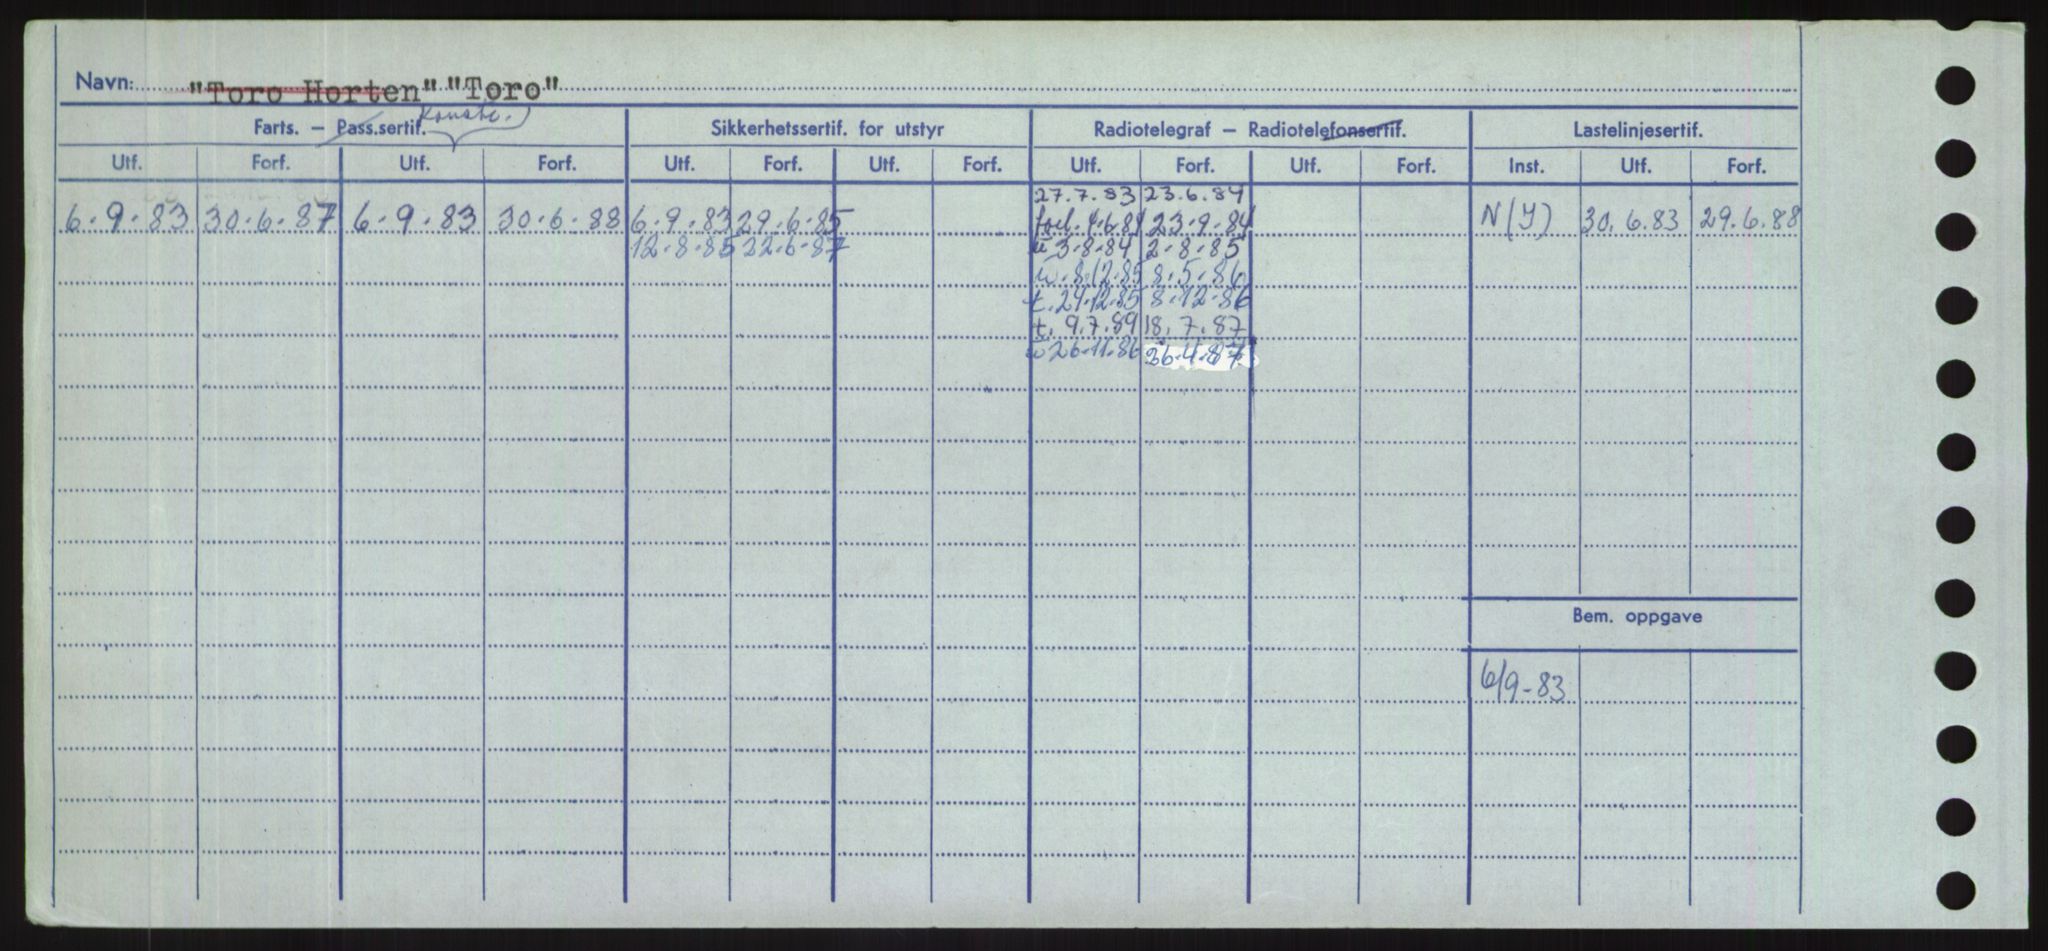 Navn: "Toro Horten" "Toro"
Konstr.
Farts. – Pass.sertif. Sikkerhetssertif. for utstyr Radiotelegraf – Radiotelefonsertif. Lastelinjesertif.
Utf. Forf. Utf. Forf. Utf. Forf. Utf. Forf. Utf. Forf. Utf. Forf. Inst. Utf. Forf.
27.7.83 23.6.84
6.9.83 30.6.87 6.9.83 30.6.88 6.9.83 29.6.85 forl. 4.6.84 23.9.84 N(Y) 30.6.83 29.6.88
12.8.85 22.6.87 u 3.8.84 2.8.85
u. 8.12.85 8.5.86
t. 24.12.85 8.12.86
t. 9.7.89 18.7.87
u 26.11.86 26.4.87
Bem. oppgave
6/9-83